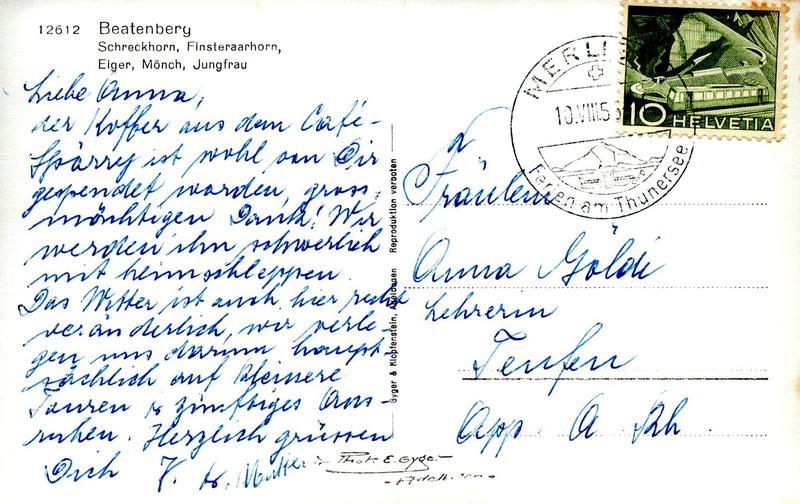 12612 Beatenberg
Schreckhorn, Finsteraarhorn,
Eiger, Mönch, Jungfrau
Liebe Anna,
der Koffer aus dem Café-
Spörry ist wohl von Dir
gespendet worden, gross,
mächtigen Dank! Wir
werden ihn schwerlich
mit heimschleppen.
Das Wetter ist auch hier recht
veränderlich, wir verle-
gen uns darum haupt
sächlich auf kleinere
Touren & zünftiges Aus-
ruhen. Herzlich grüssen
Dich V. & Mutter
Phot. E. Gyger
Adelboden
Gyger & Klopfenstein, Adelboden Reproduktion verboten
MERLI
10.VIII.5
Ferien am Thunersee
10 HELVETIA
Fräulein
Anna Göldi
Lehrerin
Teufen
App. A. Rh.